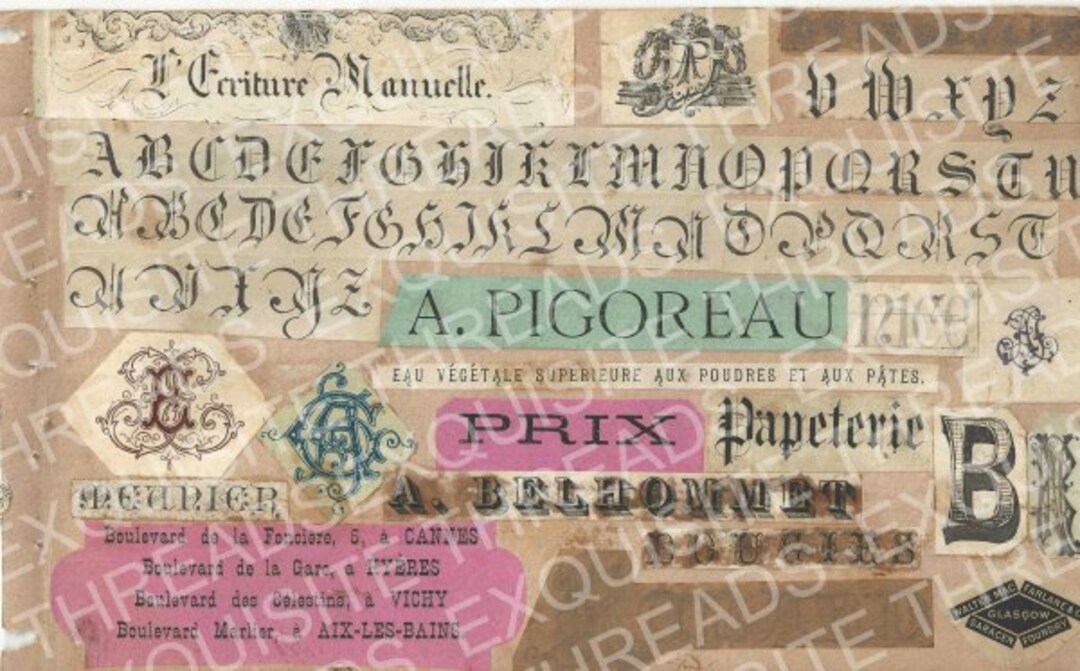 L'Ecriture Manuelle.
V W X Y Z
A B C D E F G H I K L M N O P Q R S T U
A B C D E F G H I J K L M N O P Q R S T
U V X Y Z
A. PIGOREAU
nice
EAU VÉGÉTALE SUPERIEURE AUX POUDRES ET AUX PÂTES.
PRIX
Papeterie
B
MEUNIER
A. BELHOMMET
BOUGIES
Boulevard de la Foncière, 5, à CANNES
Boulevard de la Gare, à HYÈRES
Boulevard des Célestins, à VICHY
Boulevard Marlier, à AIX-LES-BAINS.
WALTER MAC FARLANE & Co
GLASGOW
SARACEN FOUNDRY
EXQUISITE THREADS